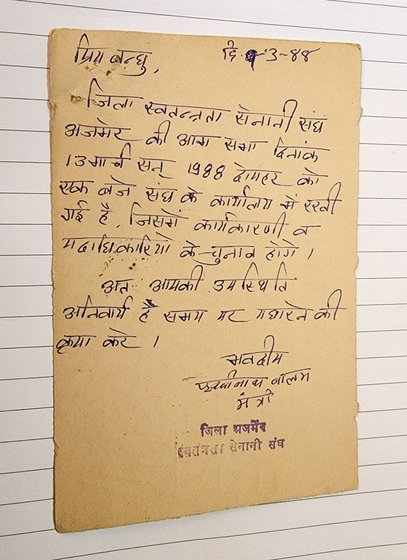 प्रिय बन्धु, दि 9-3-88
जिला स्वतन्त्रता सेनानी संघ
अजमेर की आम सभा दिनांक
13 मार्च सन् 1988 दोपहर को
एक बजे संघ के कार्यालय में रखी
गई है, जिसमें कार्यकारणी व
पदाधिकारियो के चुनाव होगे।
अत आपकी उपस्थिति
अनिवार्य है समय पर पधारने की
कृपा करे।
भवदीय
मंत्री
जिला अजमेर
स्वतंत्रता सेनानी संघ